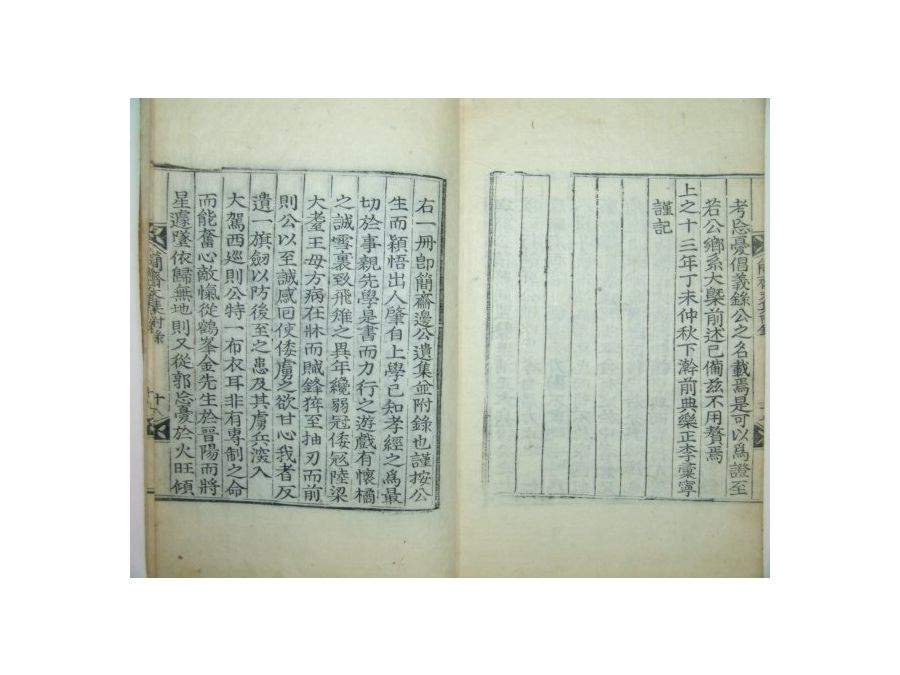 考忘憂倡義錄公之名載焉是可以爲證至
若公鄉系大槩前述已備玆不用贅焉
上之十三年丁未仲秋下澣前典樂正李雲寧
謹記
右一冊卽簡齋邊公遺集並附錄也謹按公
生而穎悟出人肇自上學已知孝經之爲最
切於事親先學是書而力行之遊戲有懷橘
之誠雪裏致飛雉之異年纔弱冠倭冦陸梁
大耋王母方病在牀而賊鋒猝至抽刃而前
則公以至誠感回使倭虜之欲甘心我者反
遺一旗劒以防後至之患及其虜兵深入
大駕西巡則公特一布衣耳非有專制之命
而能奮心敵愾從鶴峯金先生於晉陽而將
星遽墜依歸無地則又從郭忘憂於火旺傾
簡齋文集附錄
十八